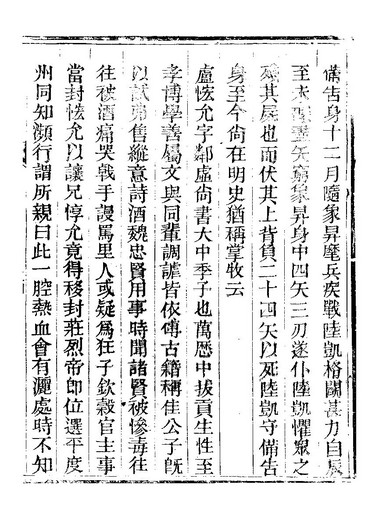 備告身十二月隨象昇麾兵疾戰陸凱格鬭甚力自辰
至未盡矢窮象昇身中四矢三刃遂仆陸凱懼眾之
殘其屍也而伏其上背負二十四矢以死陸凱守備告
身至今尚在明史猶稱掌牧云
盧允字鄰虛尚書大中季子也萬歷中拔貢生性至
孝博學善屬文與同輩調謔皆依古籍稱佳公子旣
以試弗售縱意詩酒魏忠賢用事時聞諸賢被慘毒往
往被酒痛哭戟手謾罵里人或疑爲狂子欽穀官主事
當封允以讓兄惇允竟得移封莊烈帝卽位選平度
州同知瀕行謂所親曰此一腔熱血會有灑處時不知